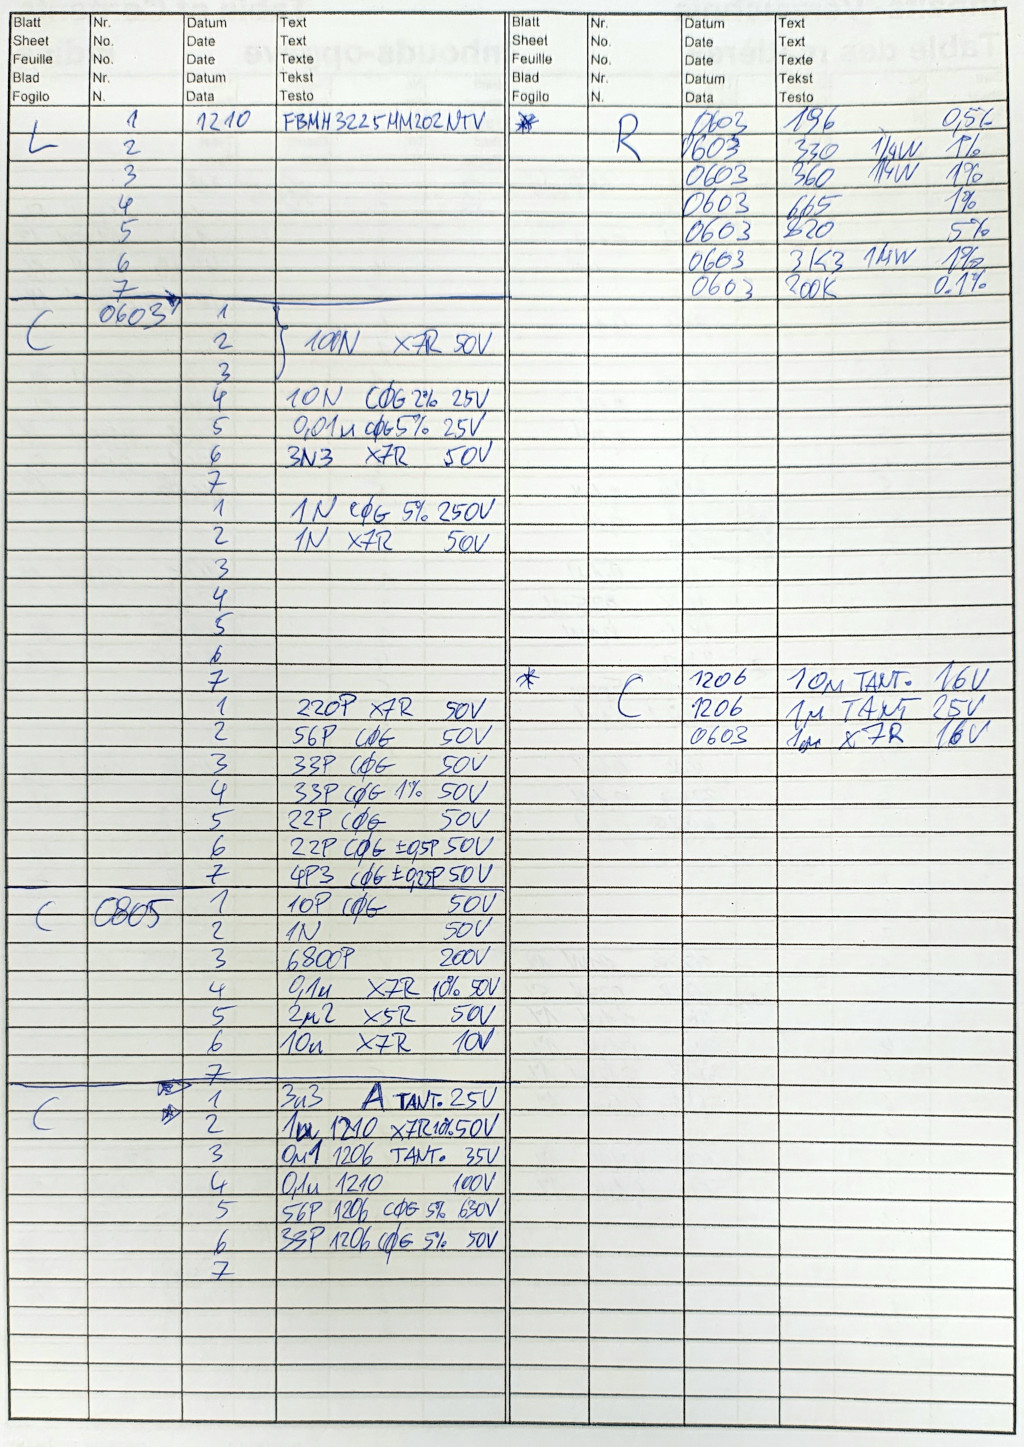 Blatt Nr. Datum Text Blatt Nr. Datum Text
Sheet No. Date Text Sheet No. Date Text
Feuille No. Date Texte Feuille No. Date Texte
Blad Nr. Datum Tekst Blad Nr. Datum Tekst
Fogilo N. Data Testo Fogilo N. Data Testo
L 1 1210 FBMH3225HM202NTV
2
3
4
5
6
7
C 0603 1
2 100N X7R 50V
3
4 10N CØG 2% 25V
5 0,01µ CØG 5% 25V
6 3N3 X7R 50V
7
1 1N CØG 5% 250V
2 1N X7R 50V
3
4
5
6
7
1 220P X7R 50V
2 56P CØG 50V
3 33P CØG 50V
4 33P CØG 1% 50V
5 22P CØG 50V
6 22P CØG ±0,5P 50V
7 4P3 CØG ±0,25P 50V
C 0805 1 10P CØG 50V
2 1N 50V
3 6800P 200V
4 0,1µ X7R 10% 50V
5 2µ2 X5R 50V
6 10µ X7R 10V
7
C 1 3µ3 A TANT. 25V
2 1µ 1210 X7R 10% 50V
3 0µ1 1206 TANT. 35V
4 0,1µ 1210 100V
5 56P 1206 CØG 5% 630V
6 33P 1206 CØG 5% 50V
7
* R 0603 196 0,5%
0603 330 1/4W 1%
0603 360 1/4W 1%
0603 1%
0603 820 5%
0603 3K3 1/4W 1%
0603 200K 0.1%
* C 1206 10µ TANT. 16V
1206 1µ TANT 25V
0603 1µ X7R 16V